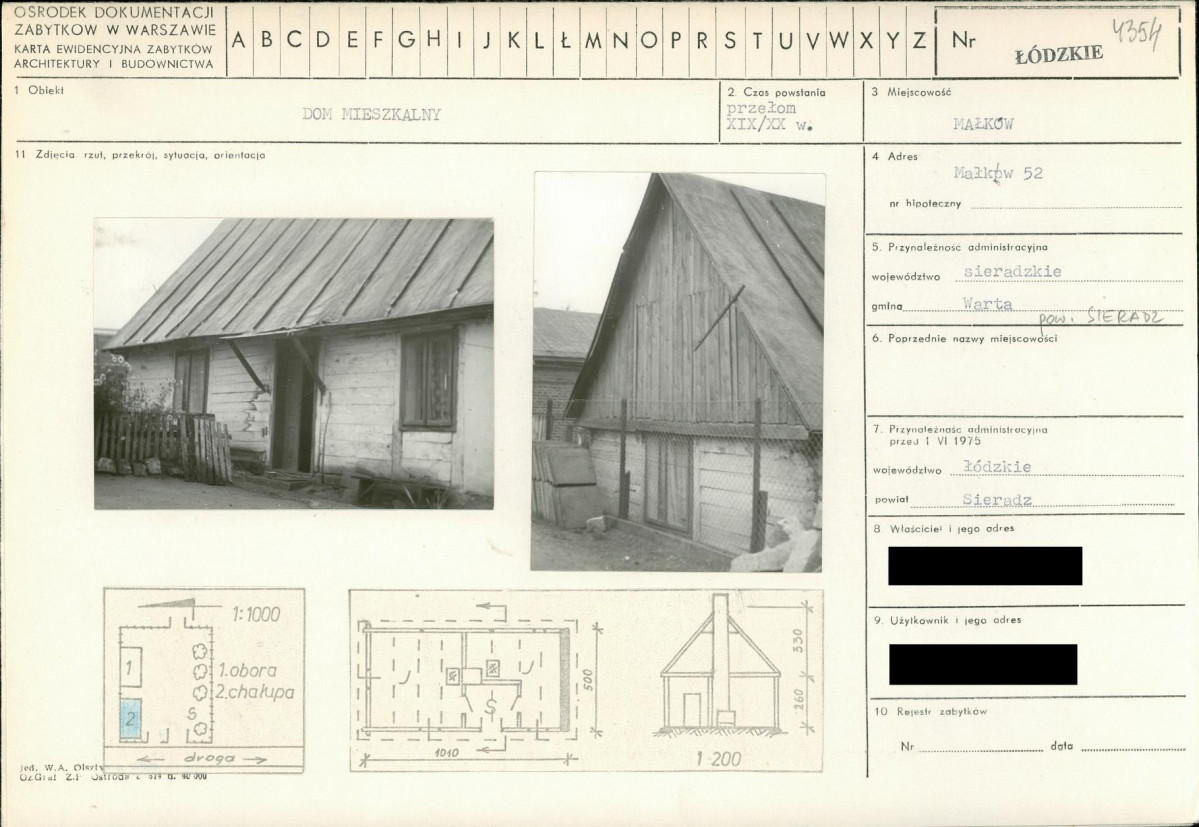 OŚRODEK DOKUMENTACJI
ZABYTKÓW W WARSZAWIE
KARTA EWIDENCYJNA ZABYTKÓW
ARCHITEKTURY I BUDOWNICTWA
A B C D E F G H I J K L Ł M N O P R S T U V W X Y Z
Nr
ŁÓDZKIE
4354
1 Obiekt
DOM MIESZKALNY
2. Czas powstania
przełom
XIX/XX w.
3 Miejscowość
MAŁKÓW
11 Zdjęcia rzut, przekrój, sytuacja, orientacja
4 Adres
Małków 52
nr hipoteczny
5. Przynależność administracyjna
województwo sieradzkie
gmina Warta
pow. SIERADZ
6. Poprzednie nazwy miejscowości
7. Przynależność administracyjna
przed 1 VI 1975
województwo łódzkie
powiat Sieradz
8. Właściciel i jego adres
9. Użytkownik i jego adres
10 Rejestr zabytków
Nr data
1:1000
1
1. obora
2. chałupa
2
S
droga
S
500
1010
330
260
1:200